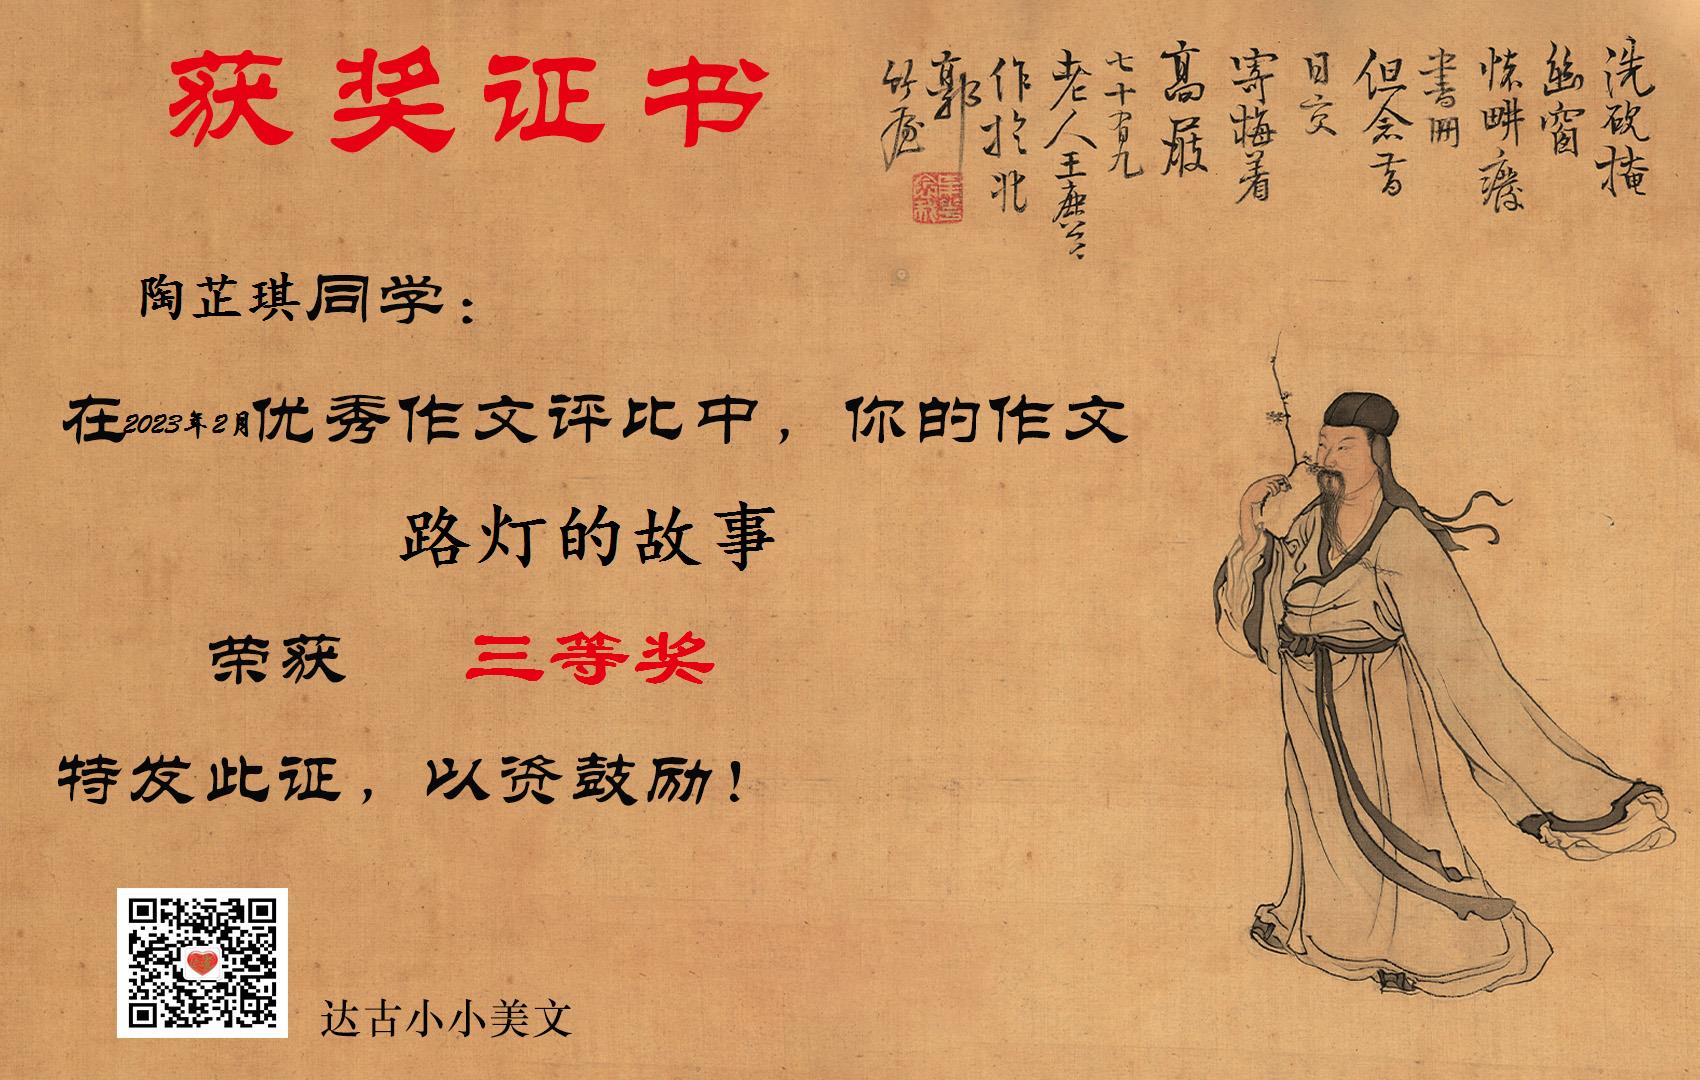 获奖证书
洗砚掩
幽窗
怀畊癈
書冊
但念昔
日交
寄梅着
高屐
七十有九
老人王鹿公
作於北
郭
竹產
陶芷琪同学：
在2023年2月优秀作文评比中，你的作文
路灯的故事
荣获 三等奖
特发此证，以资鼓励！
达古小小美文